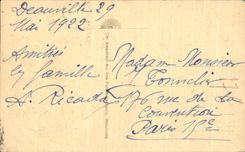 Deauville 29
Mai 1922
Amitiés
et famille
A. Ricada
Madame Monsieur
Tonnelier
176 rue de la
Convention
Paris 15e